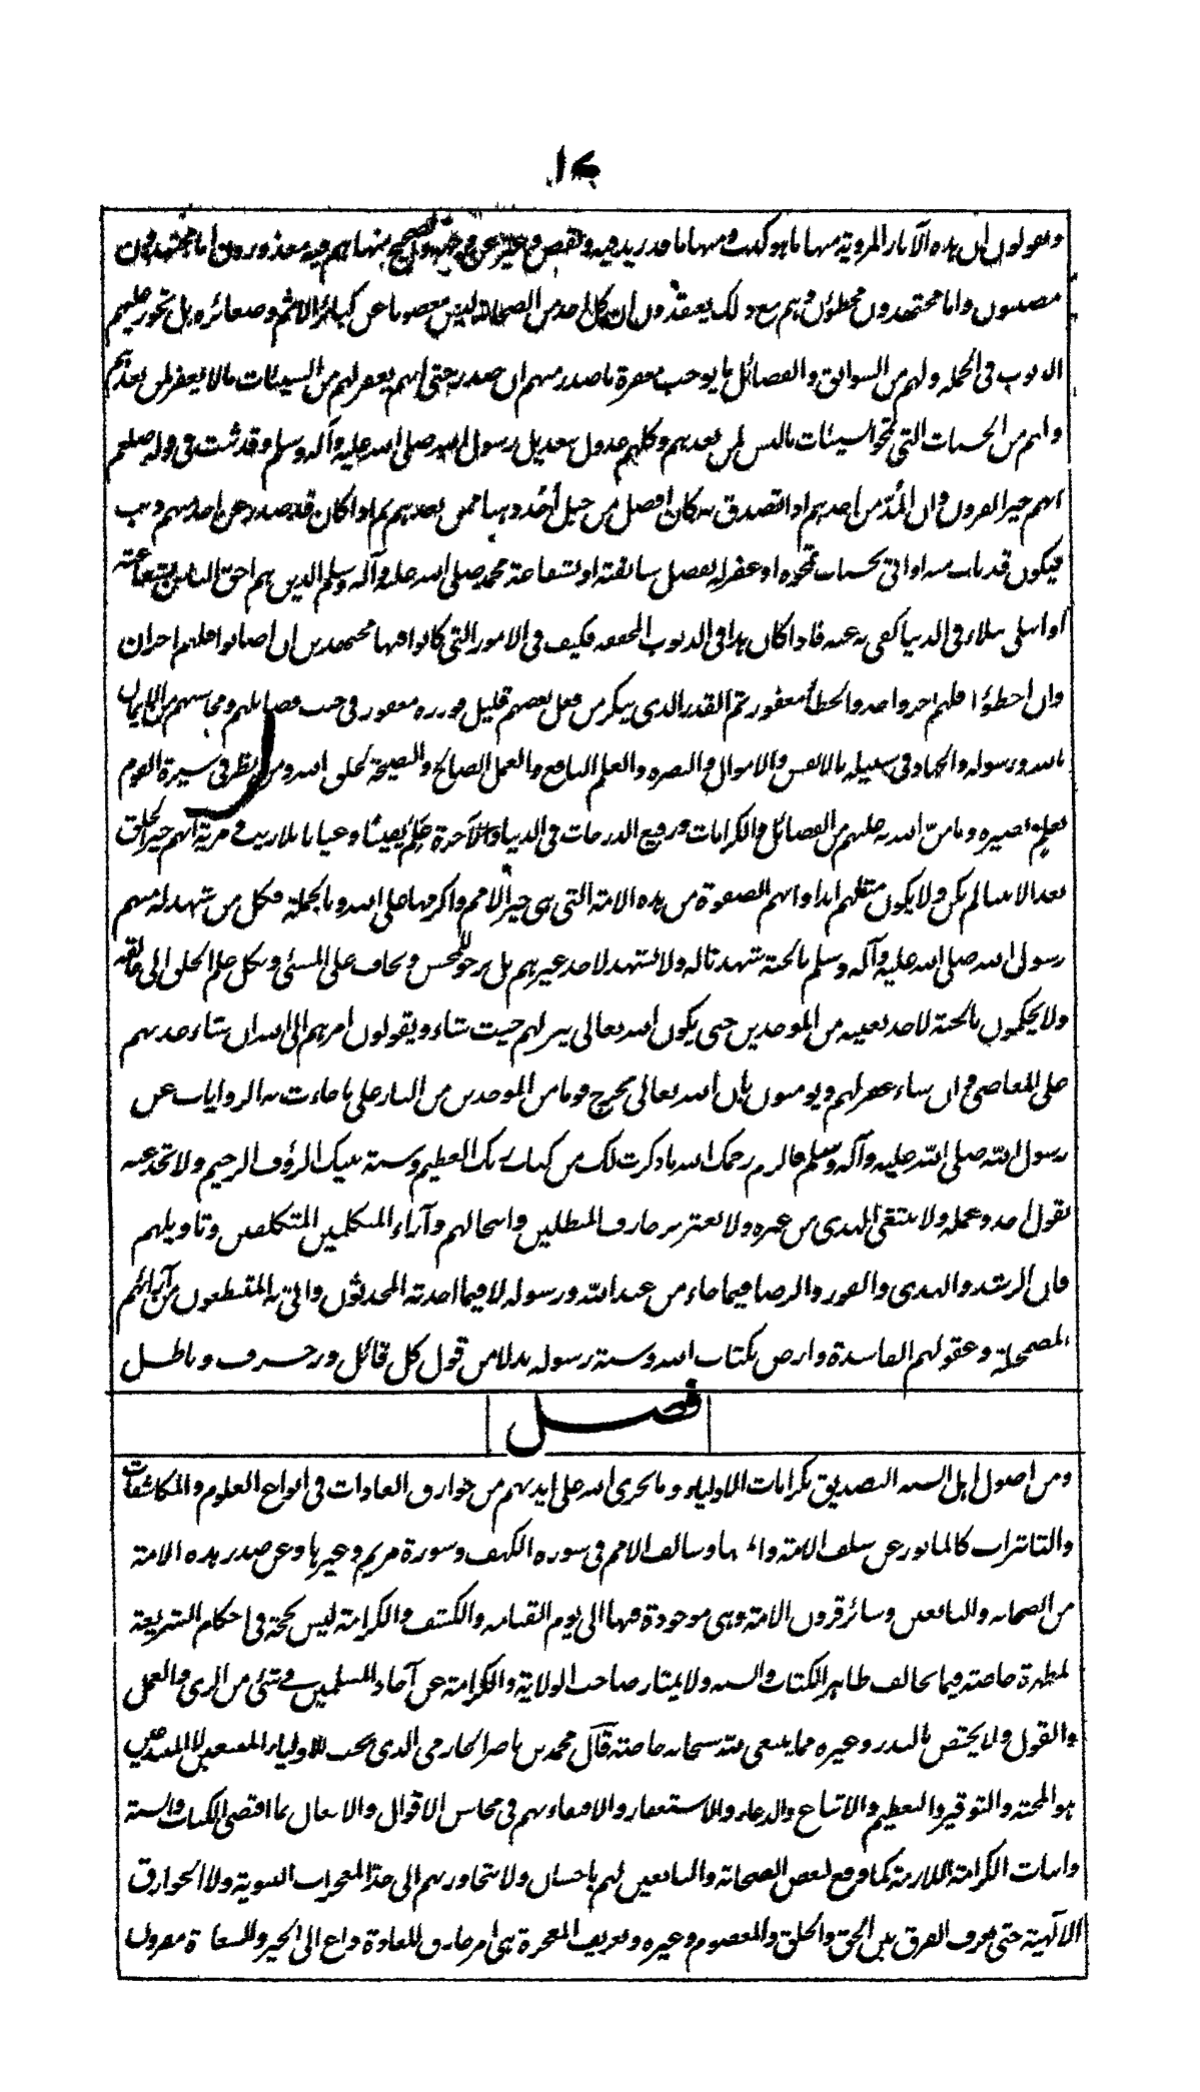 ويقولون ان هذه الآثار المروية منها ما هو كذب ومنها ما قد زيد فيه ونقص وغير عن وجهه والصحيح منها هم فيه معذورون اما مجتهدون
مصيبون واما مجتهدون مخطؤن وهم مع ذلك يعتقدون ان كل احد من الصحابة ليس معصوما عن كبائر الاثم وصغائره بل تجوز عليهم
الذنوب فى الجملة ولهم من السوابق والفضائل ما يوجب مغفرة ما صدر منهم ان صدر حتى انهم يغفر لهم من السيئات ما لا يغفر لمن بعدهم
ولهم من الحسنات التى تمحو السيئات ما ليس لمن بعدهم وكلهم عدول بتعديل رسول الله صلى الله عليه وآله وسلم وقد ثبت فى قوله صلعم
انهم خير القرون وان المُدّ من احدهم اذا تصدق به كان افضل من جبل أُحُد ذهبا ممن بعدهم ثم اذا كان قد صدر عن احد منهم ذنب
فيكون قد تاب منه او اتى بحسنات تمحوه او غفر له بفضل سابقته او بشفاعة محمد صلى الله عليه وآله وسلم الذين هم احق الناس بشفاعته
او ابتلى ببلاء فى الدنيا كفى به عنه فاذا كان هذا فى الذنوب المحققة فكيف فى الامور التى كانوا فيها مجتهدين ان اصابوا فلهم اجران
وان اخطؤا فلهم اجر واحد والخطأ مغفور ثم القدر الذى ينكر من فعل بعضهم قليل ونزره مغفور فى جنب فضائلهم ومحاسنهم من الايمان
بالله ورسوله والجهاد فى سبيله بالانفس والاموال والنصرة والعلم النافع والعمل الصالح والنصيحة لخلق الله ومن نظر فى سيرة القوم
بعلم وبصيرة وما منّ الله به عليهم من الفضائل والكرامات ورفيع الدرجات فى الدنيا والآخرة علم يقينًا وعيانا بلا ريب ومرية انهم خير الخلق
بعد الانبيا لم يكن ولا يكون مثلهم ابدا وانهم الصفوة من هذه الامة التى هى خير الامم واكرمها على الله وبالجملة فكل من شهد له منهم
رسول الله صلى الله عليه وآله وسلم بالجنة شهدنا له ولا نشهد لاحد غيرهم بل نرجو للمحسن ونخاف على المسئ ونكل علم الخلق الى خالقه
ولا يحكمون بالجنة لاحد بعينه من الموحدين حتى يكون الله تعالى ينزلهم حيث شاء ويقولون امرهم الى الله ان شاء عذبهم
على المعاصى وان شاء غفر لهم ويومنون بان الله تعالى يخرج قوما من الموحدين من النار على ما جاءت به الروايات عن
رسول الله صلى الله عليه وآله وسلم فالزم رحمك الله ما ذكرت لك من كتاب ربك العظيم وسنة نبيك الرؤف الرحيم ولا تحد عنه
بقول احد وعمله ولا تبتغى الهدى من غيره ولا تغتر بزخارف المبطلين وانتحالهم وآراء المتكلمين المتكلفين وتاويلهم
فان الرشد والهدى والفوز والرضا فيما جاء من عند الله ورسوله لا فيما احدثه المحدثون واتى به المتنطعون من آرائهم
المضمحلة وعقولهم الفاسدة وارض بكتاب الله وسنة رسوله بدلا من قول كل قائل وزخرف وباطل
فصل
ومن اصول اهل السنة التصديق بكرامات الاولياء وما يجرى الله على ايديهم من خوارق العادات فى انواع العلوم والمكاشفات
والتاثيرات كالماثور عن سلف الامة وسالف الامم فى سورة الكهف وسورة مريم وغيرها وعن صدر هذه الامة
من الصحابة والتابعين وسائر قرون الامة وهى موجودة فيها الى يوم القيامة والكشف والكرامة ليس بحجة فى احكام الشريعة
المطهرة خاصة فيما يخالف ظاهر الكتاب والسنة ولا يمتاز صاحب الولاية والكرامة عن آحاد المسلمين فى شئ من الزى والعمل
والقول ولا يختص بالنذر وغيره مما ينبغى لله سبحانه خاصة قال محمد بن ناصر الحازمى الذى يجب للاولياء المتبعين لا المبتدعين
هو المحبة والتوقير والتعظيم والاتباع والدعاء والاستغفار والاقتداء بهم فى محاسن الاقوال والافعال بما اقتضى الكتاب والسنة
واثبات الكرامة اللازمة كما وقع لبعض الصحابة والتابعين لهم باحسان ولا يتجاوز بهم الى حد المعجزات النبوية ولا الخوارق
الآلهية حتى يعرف الفرق بين الحق والخلق والمعصوم وغيره وتعريف المعجزة هى امر خارق للعادة داع الى الخير والسعادة مقرون